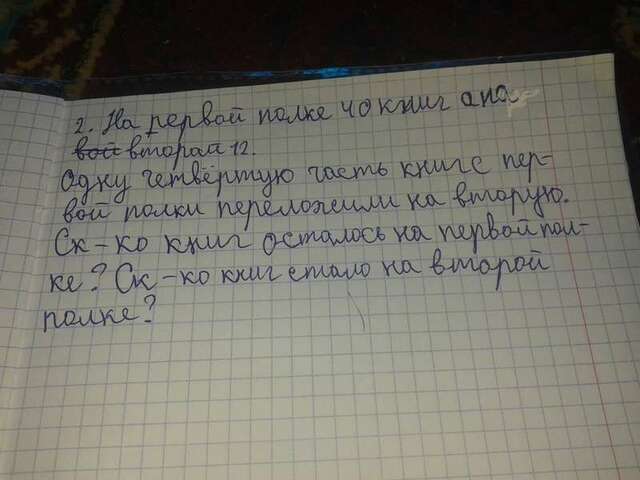 2. На первой полке 40 книг а на
вой вторай 12.
Одну четвёртую часть книг с пер-
вой полки переложили на вторую.
Ск-ко книг осталось на первой пол-
ке? Ск-ко книг стало на второй
полке?